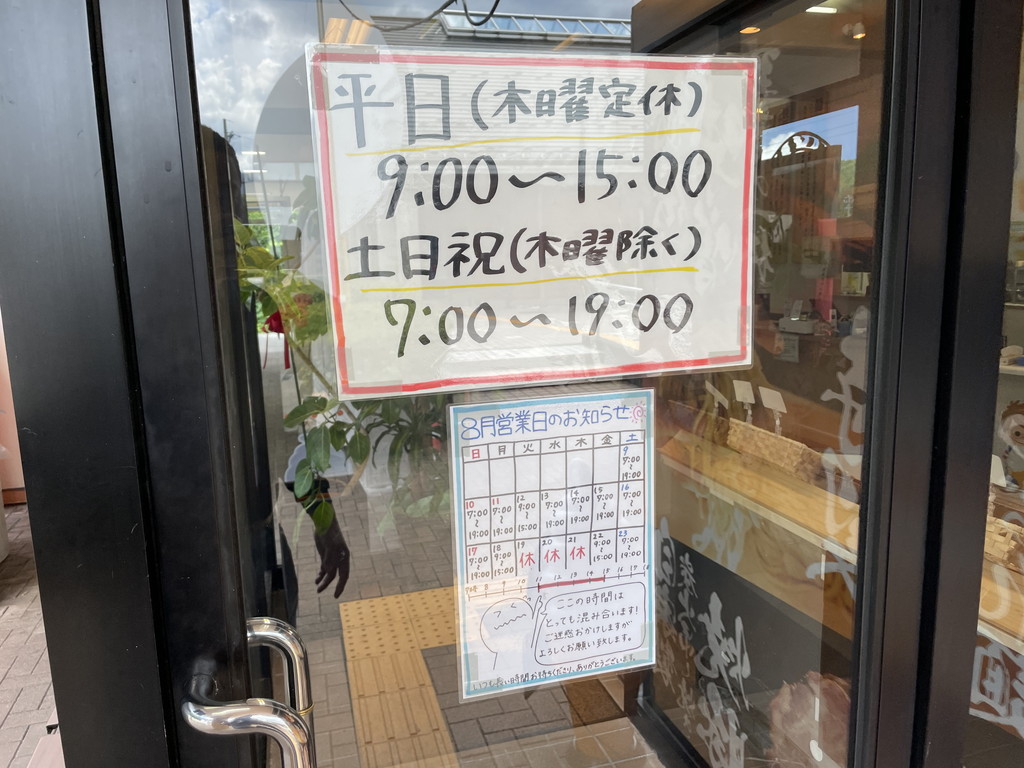 平日(木曜定休)
9:00〜15:00
土日祝(木曜除く)
7:00〜19:00
8月営業日のお知らせ
日 月 火 水 木 金 土
9
7:00
〜
19:00
10 11 12 13 14 15 16
7:00 9:00 9:00 9:00 9:00 7:00 7:00
〜 〜 〜 〜 〜 〜 〜
19:00 19:00 15:00 19:00 19:00 19:00 19:00
17 18 19 20 21 22 23
7:00 9:00 休 休 休 9:00 7:00
〜 〜 〜 〜
19:00 15:00 15:00 19:00
11 12 13 14 15 16 17 18
ここの時間は
とっても混み合います!
ご迷惑おかけしますが
よろしくお願い致します。
いつも長い時間お待ちくださり、ありがとうございます。